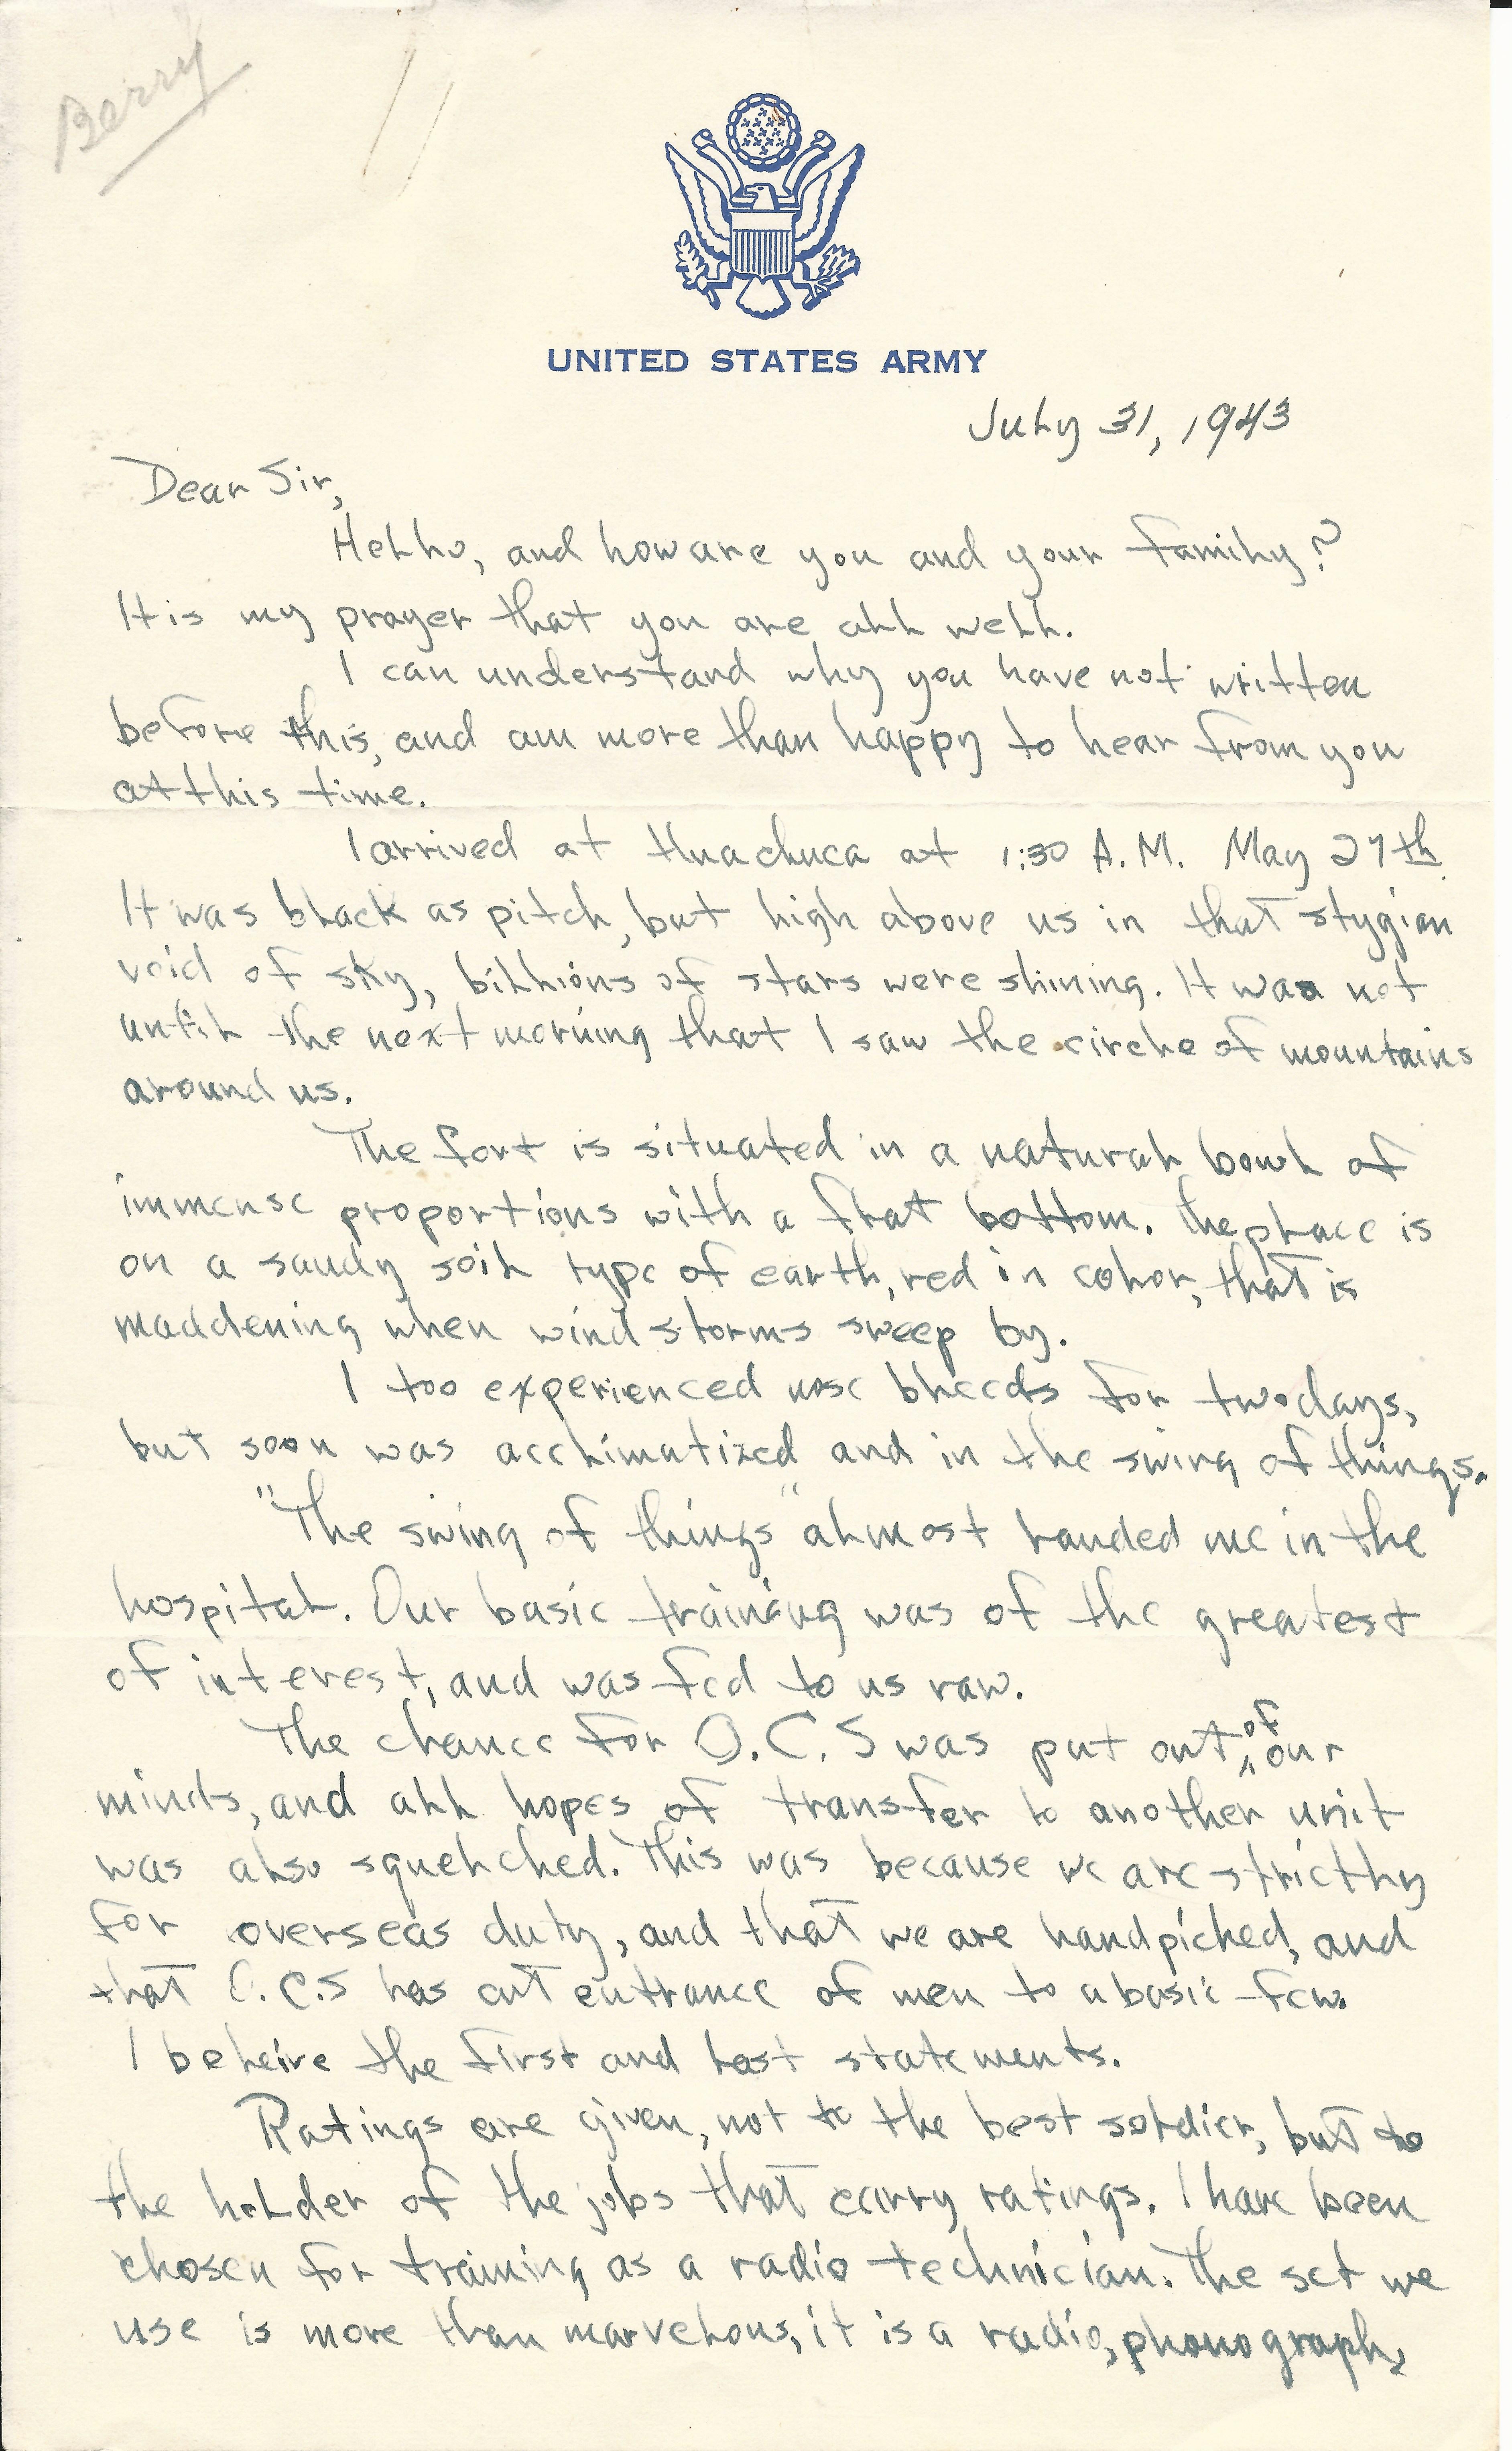 Berry
UNITED STATES ARMY
July 31, 1943
Dear Sir,
Hello, and how are you and your family?
It is my prayer that you are all well.
I can understand why you have not written
before this, and am more than happy to hear from you
at this time.
I arrived at Huachuca at 1:30 A.M. May 27th.
It was black as pitch, but high above us in that stygian
void of sky, billions of stars were shining. It was not
until the next morning that I saw the circle of mountains
around us.
The fort is situated in a natural bowl of
immense proportions with a flat bottom. The place is
on a sandy soil type of earth, red in color, that is
maddening when wind storms sweep by.
I too experienced nose bleeds for two days,
but soon was acclimatized and in the swing of things.
"The swing of things" almost landed me in the
hospital. Our basic training was of the greatest
of interest, and was fed to us raw.
The chance for O.C.S was put out of our
minds, and all hopes of transfer to another unit
was also squelched. This was because we are strictly
for overseas duty, and that we are handpicked, and
that O.C.S has cut entrance of men to a basic few.
I beleive the first and last statements.
Ratings are given, not to the best soldier, but to
the holder of the jobs that carry ratings. I have been
chosen for training as a radio technician. The set we
use is more than marvelous, it is a radio, phonograph,